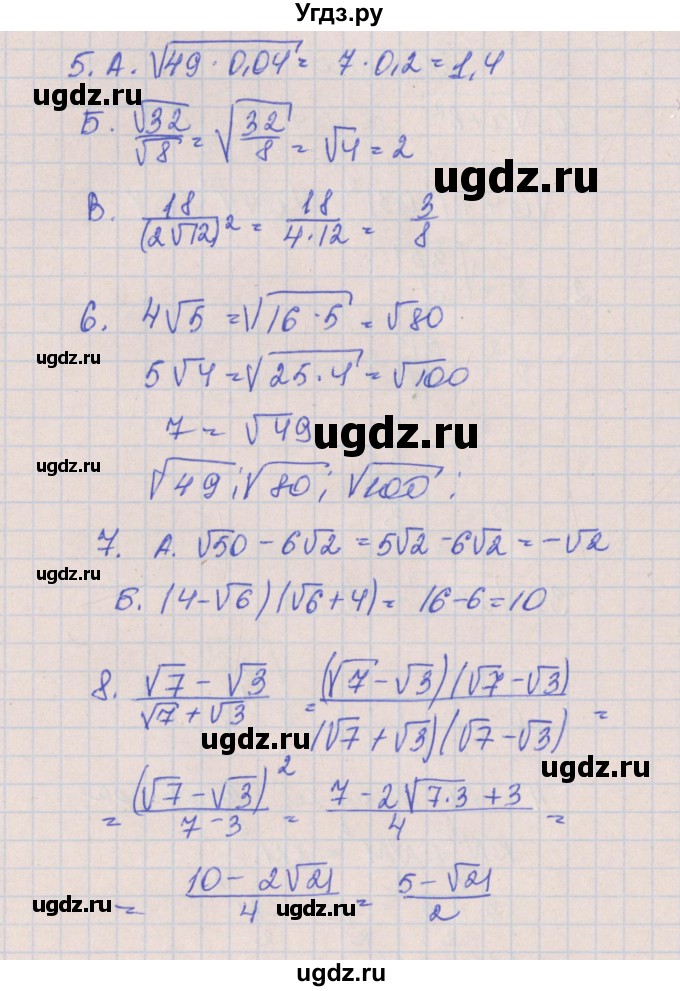 Угдз.ру
5. А. √49 · 0,04 = 7 · 0,2 = 1,4
ugdz.ru
Б. √32/√8 = √32/8 = √4 = 2
ugdz.ru
В. 18/(2√12)² = 18/4·12 = 3/8
6. 4√5 = √16 · 5 = √80
ugdz.ru
5√4 = √25 · 4 = √100
7 = √49
ugdz.ru
ugdz.ru
√49; √80; √100;
7. А. √50 - 6√2 = 5√2 - 6√2 = -√2
ugdz.ru
Б. (4-√6)(√6+4) = 16-6=10
8. √7 - √3/√7 + √3 = (√7 - √3)(√7 - √3)/(√7 + √3)(√7 - √3) =
ugdz.ru
= (√7 - √3)²/7-3 = 7 - 2√7·3 + 3/4 =
= 10 - 2√21/4 = 5 - √21/2
ugdz.ru ugdz.ru ugdz.ru
ugdz.ru